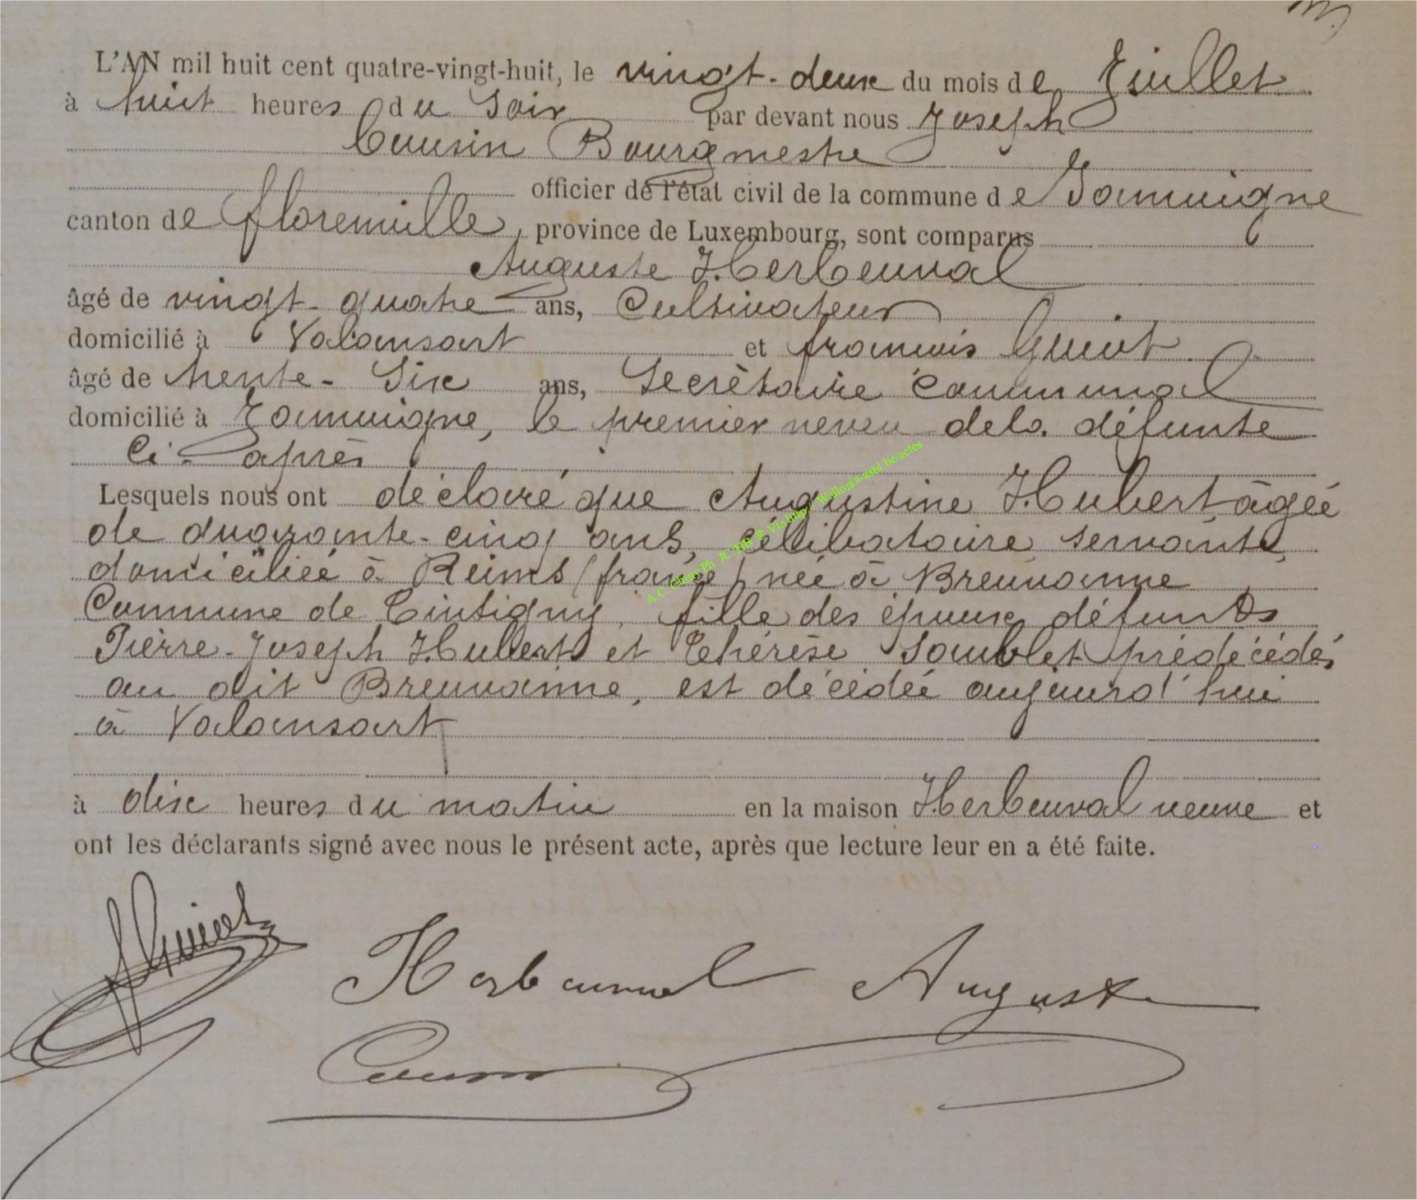 L'AN mil huit cent quatre-vingt-huit, le vingt-deux du mois de Juillet
à huit heures du Soir par devant nous Joseph
Cousin Bourgmestre
officier de l'état civil de la commune de Jamoigne
canton de florenville, province de Luxembourg, sont comparus
Auguste Herbeuval
âgé de vingt-quatre ans, Cultivateur
domicilié à Valansart et francois Guiot
âgé de trente-Six ans, Secrètaire Communal
domicilié à Jamoigne, le premier neveu de la défunte
Ci-après
Lesquels nous ont déclaré que Augustine Hubert âgée
de quarante-cinq ans, célibataire servante,
domiciliée à Reims (france) née à Breuvanne
Commune de Tintigny, fille des époux défunts
Pierre-Joseph Hubert et Thérèse Soublet prédécédés
au dit Breuvanne, est décédée aujourd'hui
à Valansart
à dix heures du matin en la maison Herbeuval veuve et
ont les déclarants signé avec nous le présent acte, après que lecture leur en a été faite.
f Guiot
Herbeuval Auguste
Cousin